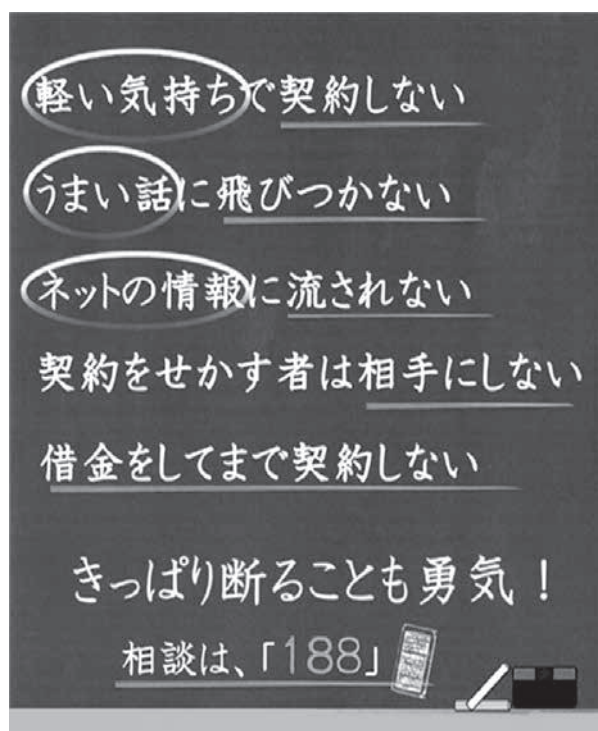 軽い気持ちで契約しない
うまい話に飛びつかない
ネットの情報に流されない
契約をせかす者は相手にしない
借金をしてまで契約しない
きっぱり断ることも勇気！
相談は、「188」